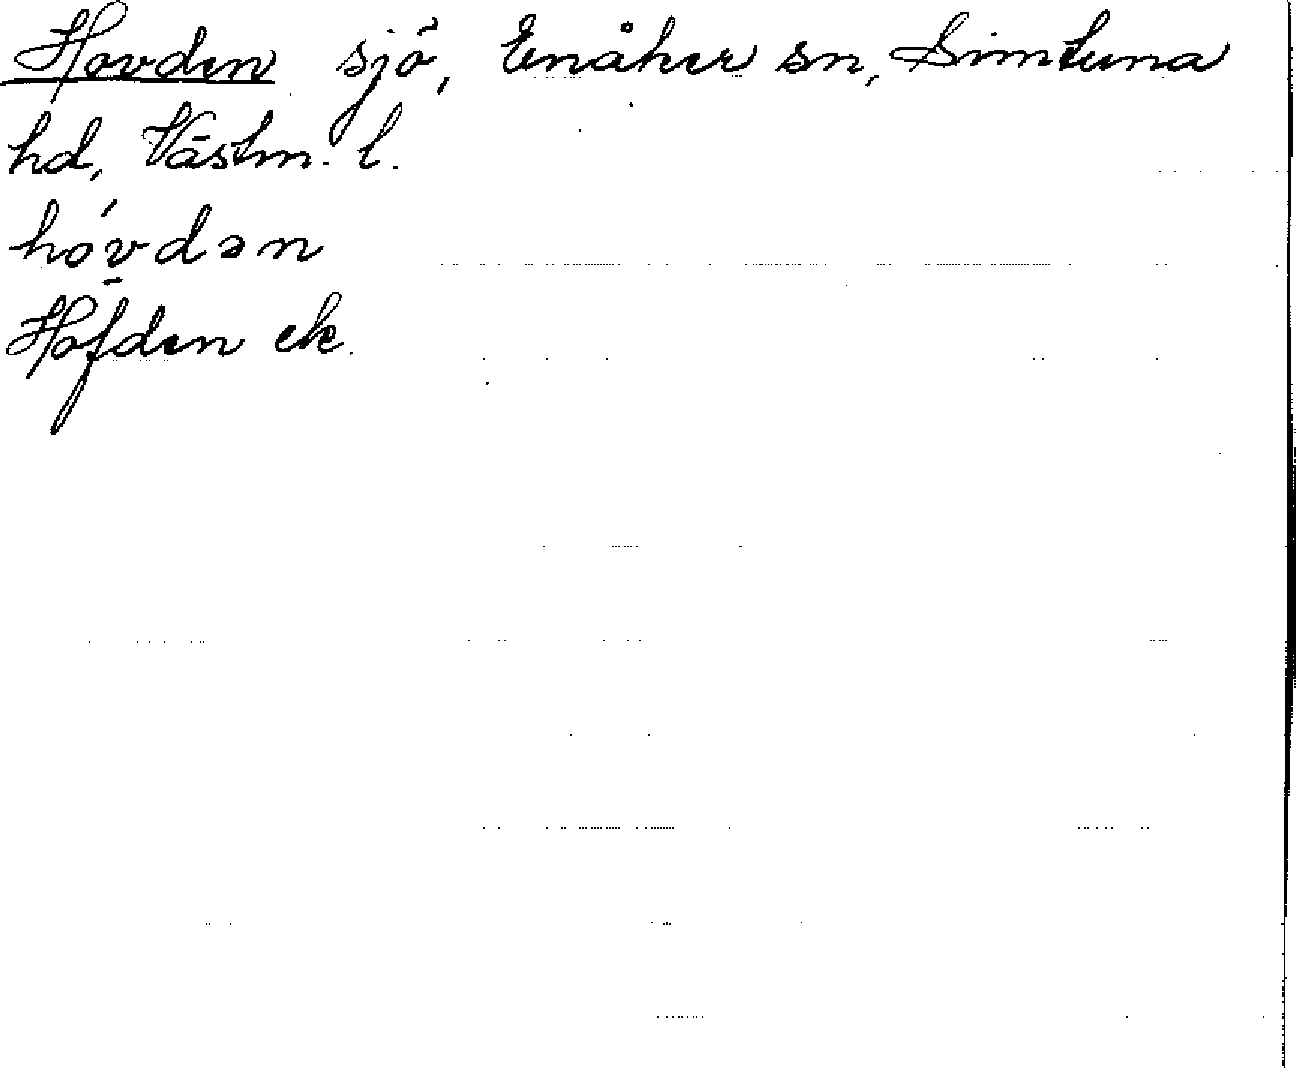 Hovden sjö, Enåker sn, Simtuna
hd, Västm. l.
hóv̱dən
Hofden ek.